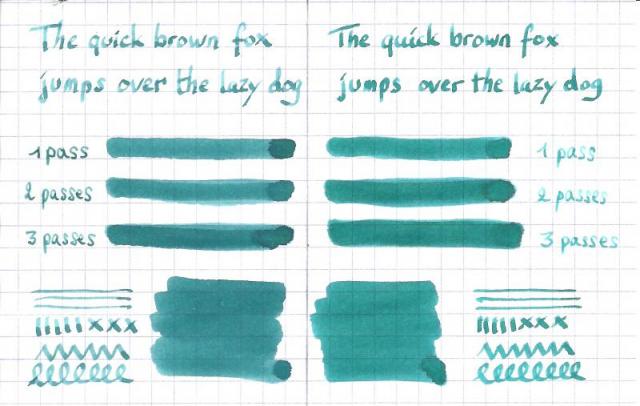 The quick brown fox
jumps over the lazy dog
1 pass
2 passes
3 passes
The quick brown fox
jumps over the lazy dog
1 pass
2 passes
3 passes
IIIIIxxx
eeeeeee
IIIIIxxx
eeeeeee